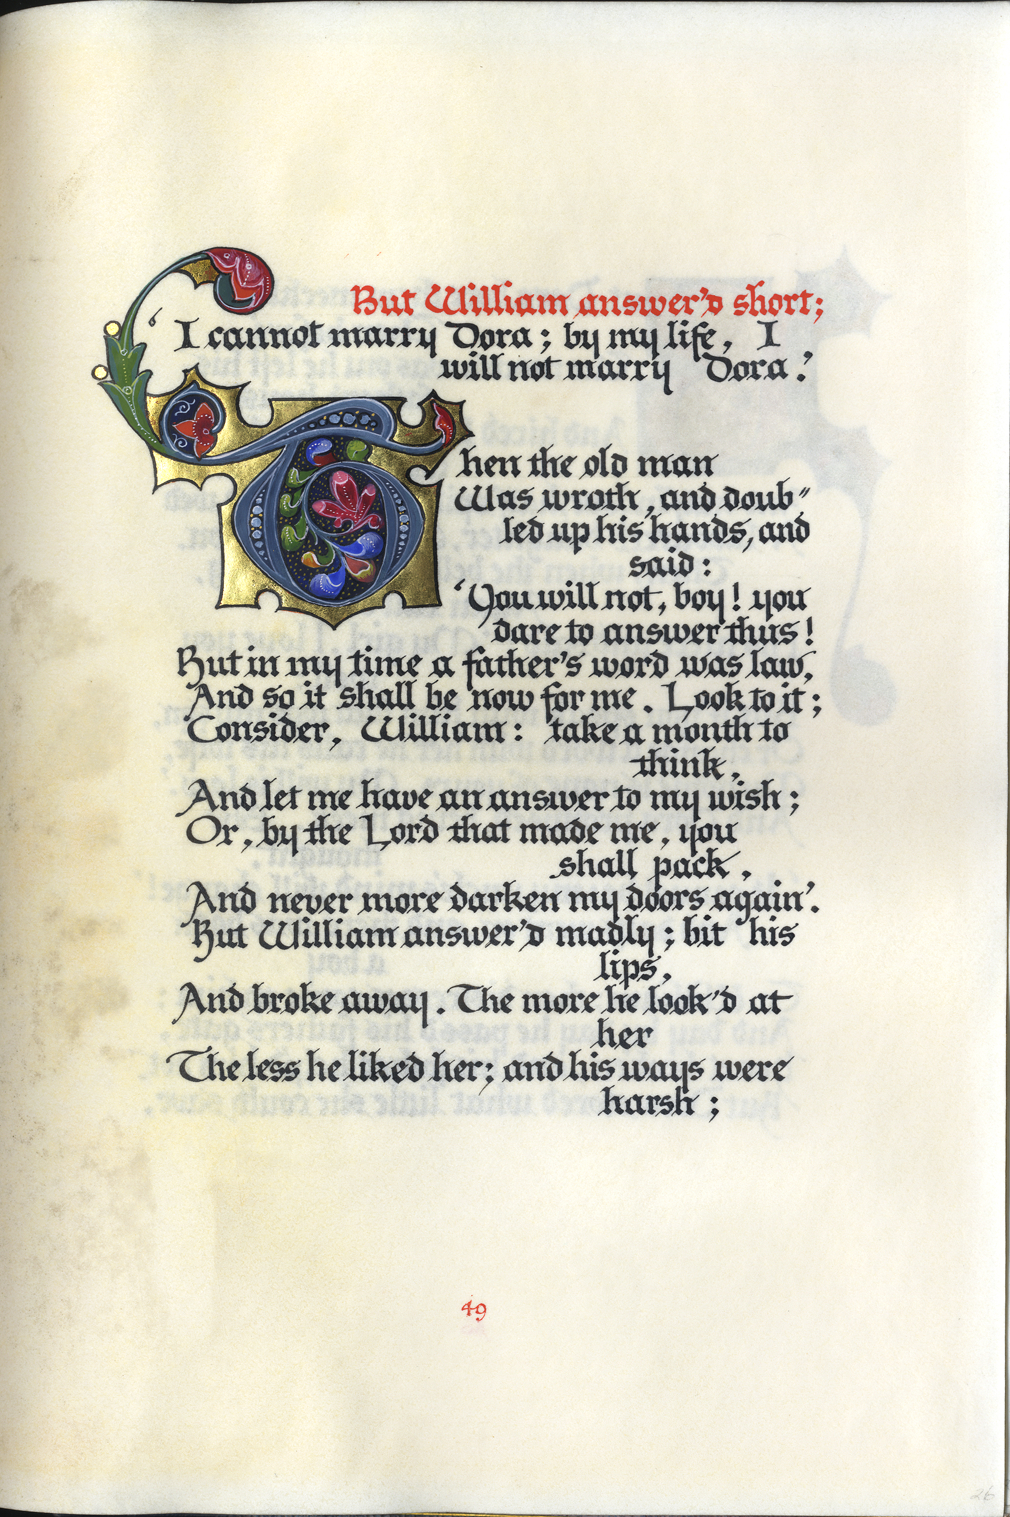 But William answer'd short;
'I cannot marry Dora; by my life, I
will not marry Dora.'
Then the old man
Was wroth, and doub-
led up his hands, and
said:
'You will not, boy! you
dare to answer thus!
But in my time a father's word was law,
And so it shall be now for me. Look to it;
Consider, William: take a month to
think,
And let me have an answer to my wish;
Or, by the Lord that made me, you
shall pack,
And never more darken my doors again'.
But William answer'd madly; bit his
lips,
And broke away. The more he look'd at
her
The less he liked her; and his ways were
harsh;
49
26